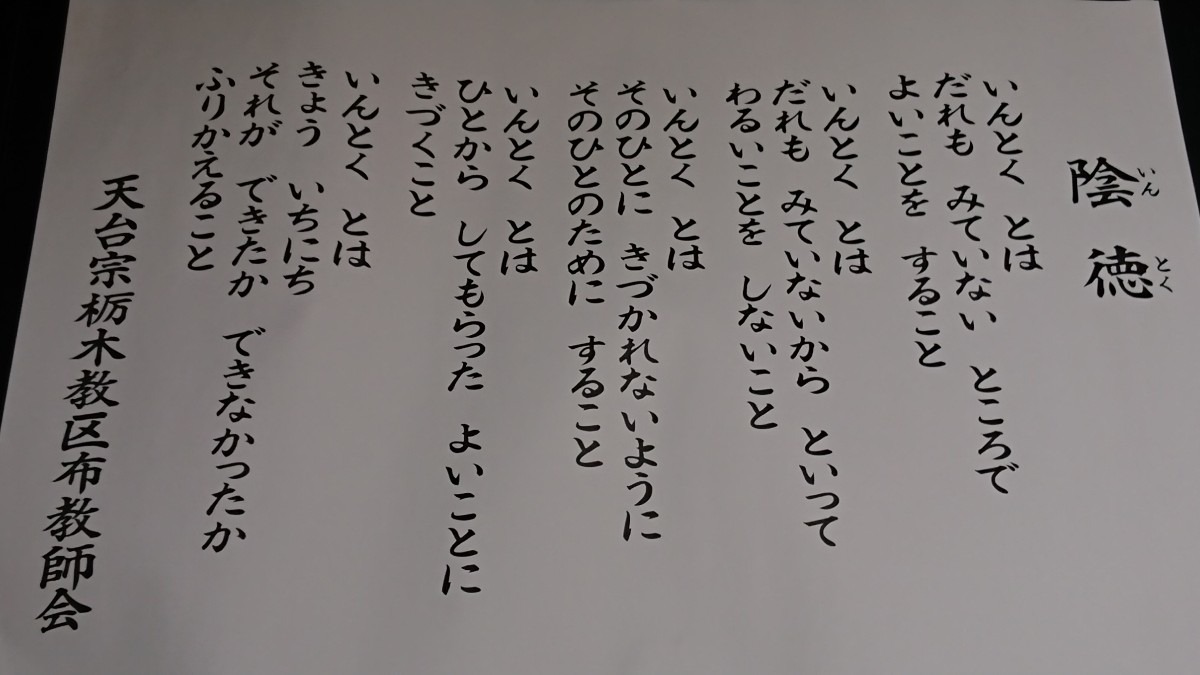 陰徳
いんとく
いんとく とは
だれも みていない ところで
よいことを すること
いんとく とは
だれも みていないから といって
わるいことを しないこと
いんとく とは
そのひとに きづかれないように
そのひとのために すること
いんとく とは
ひとから してもらった よいことに
きづくこと
いんとく とは
きょう いちにち
それが できたか できなかったか
ふりかえること
天台宗栃木教区布教師会